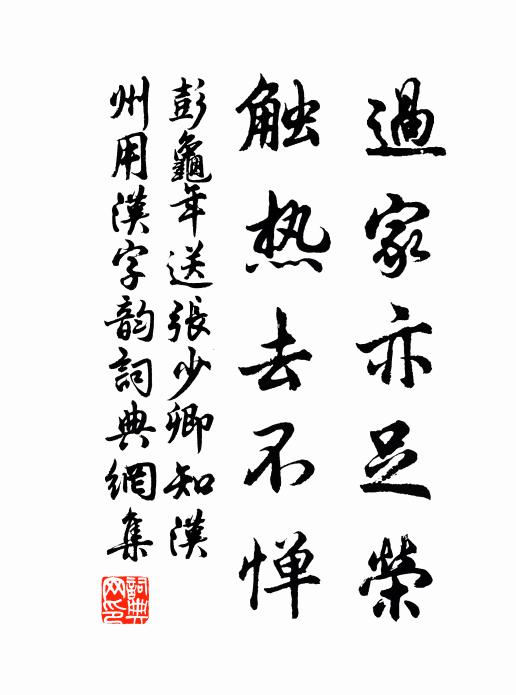 過家亦足榮
触热去不惮
彭龜年送張少卿知漢
州用漢字韵詞典網集
詞典網印